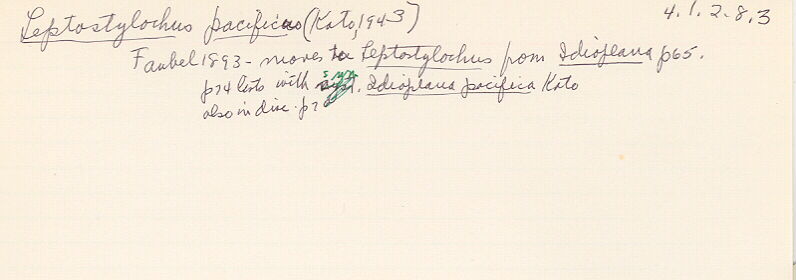 Leptostylochus pacificus (Kato, 1943) 4.1.2.8.3
Faubel 1893 - moves to Leptostylochus from Idioplana p65.
p74 lists with syn. Idioplana pacifica Kato
also in disc. p70